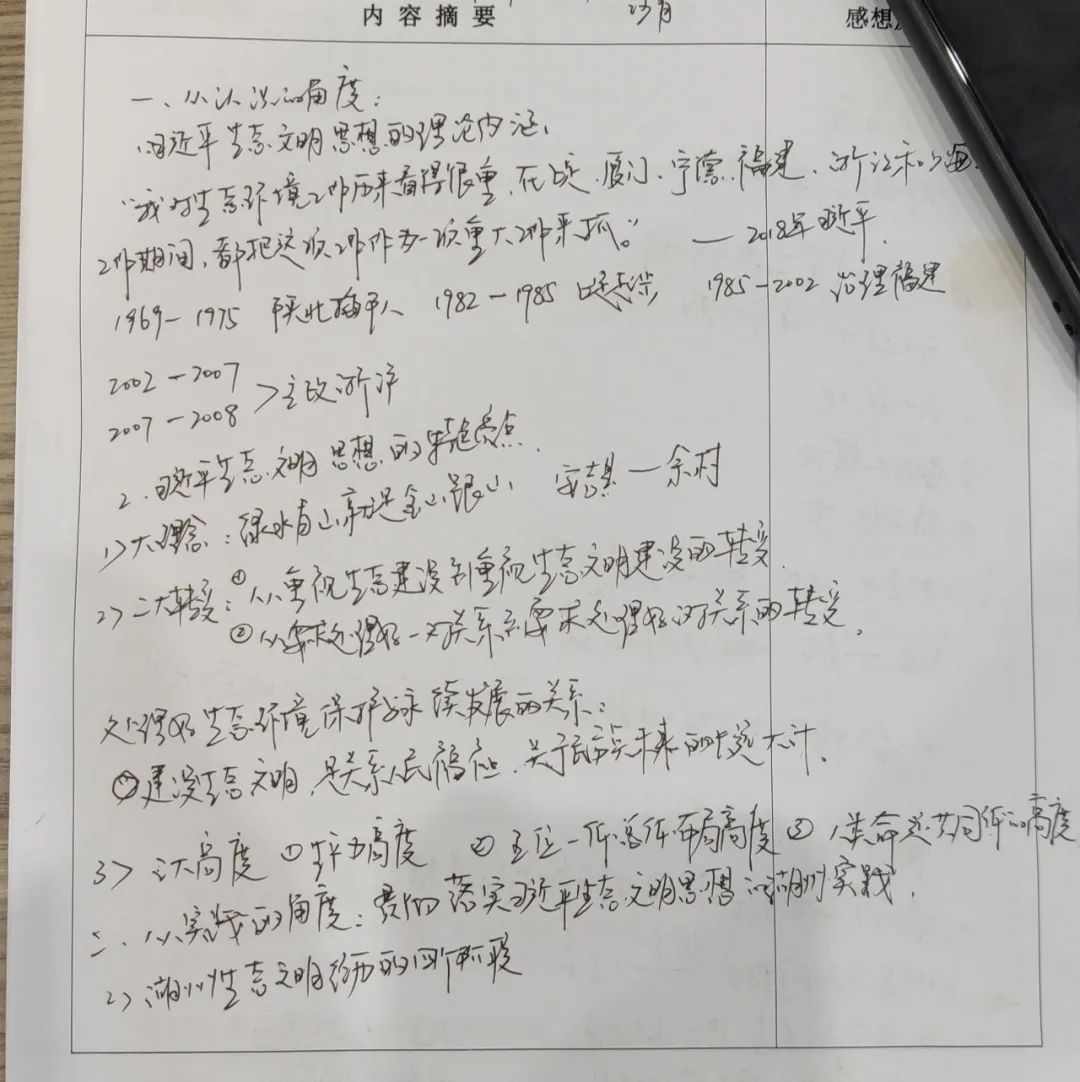 内容摘要
感想
一、从认识的角度:
习近平生态文明思想的理论内涵、
"我对生态环境工作历来看得很重,在正定、厦门、宁德、福建、浙江和上海
工作期间,都把这项工作作为一项重大工作来抓。" — 2018年习近平.
1969-1975 陕北插队 1982-1985 1985-2002 治理福建
2002-2007
2007-2008 > 主政浙沪
2. 习近平生态文明思想的特色亮点.
1> 大理念:绿水青山就是金山银山 安吉县—余村
2> 二大转变:① 从重视生态建设到重视生态文明建设的转变.
② 从要求处理好一对关系到要求处理好 对关系的转变.
处理好生态环境保护与永续发展的关系:
建设生态文明,是关系人民福祉、关于民族未来的长远大计.
3> 三大高度 ①生产力高度 ② 五位一体总体布局高度 ③ 人类命运共同体的高度
二、从实践的角度:贯彻落实习近平生态文明思想的湖州实践.
2> 湖州生态文明经历的四个阶段